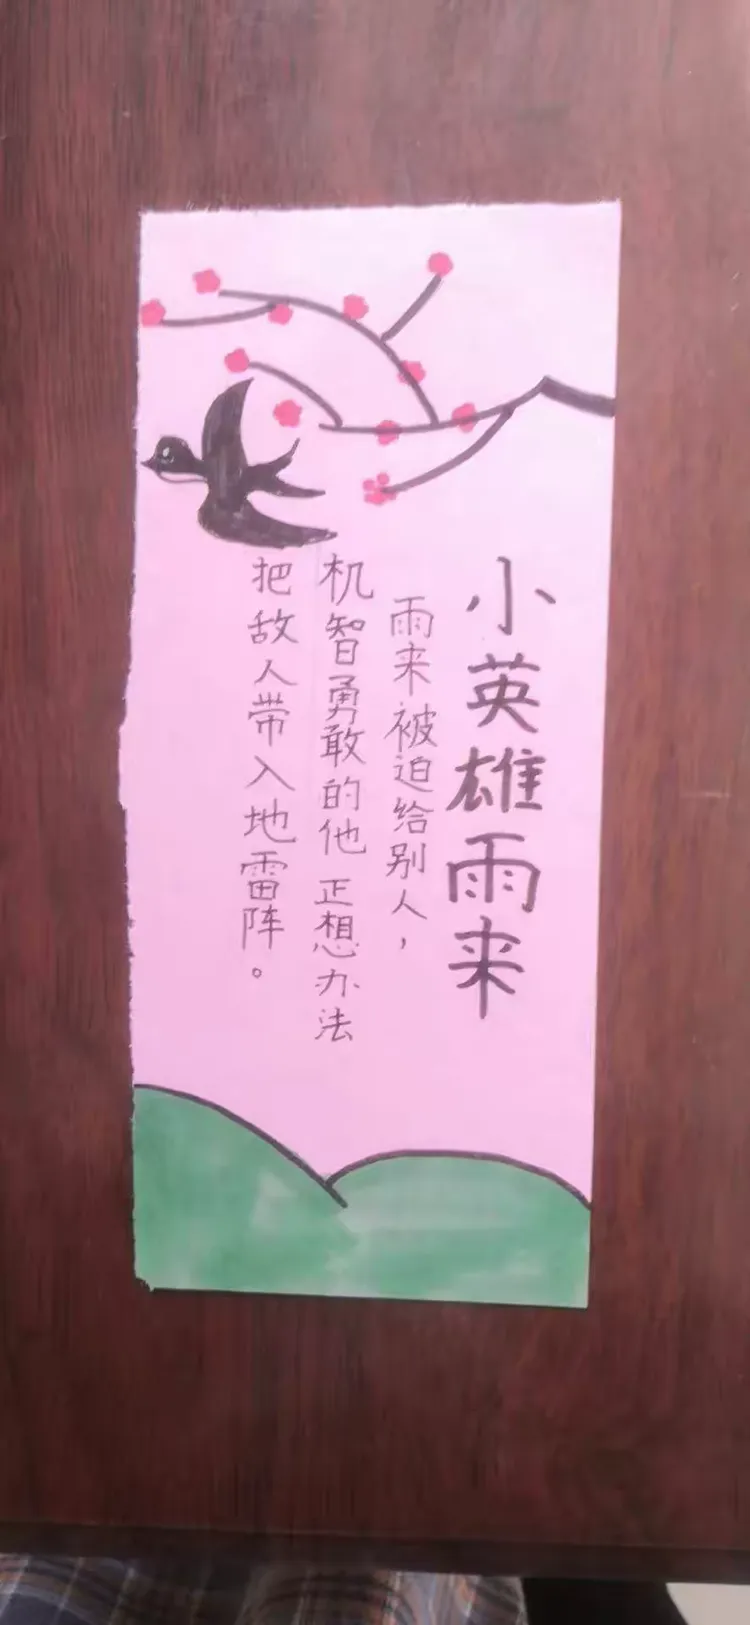 小英雄雨来
雨来被迫给别人，
机智勇敢的他正想办法
把敌人带入地雷阵。